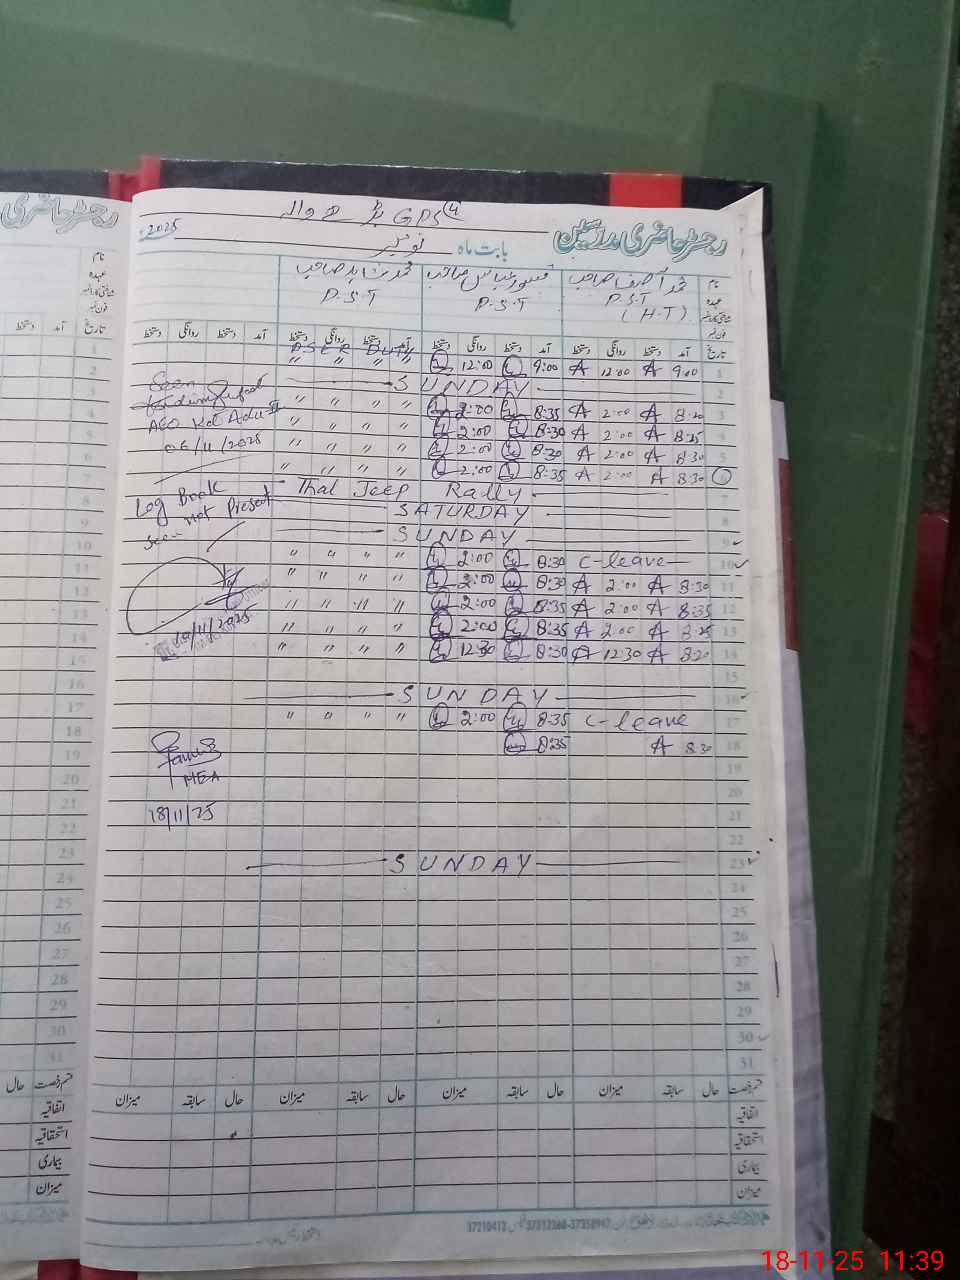 رجسٹر حاضری مدرسین
GPS 4
بابت ماہ نومبر 2025
نام
عہدہ
محمد آصف صاحب P.S.T (H.T)
صاحب P.S.T
محمد شاہد صاحب P.S.T
تاریخ آمد دستخط روانگی دستخط آمد دستخط روانگی دستخط آمد دستخط روانگی دستخط آمد دستخط روانگی دستخط
1 9:00 A 12:00 A 9:00 12:00 PSER DUTY
2 SUNDAY
3 8:20 A 2:00 A 8:35 2:00 " " " "
4 8:25 A 2:00 A 8:30 2:00 " " " "
5 8:30 A 2:00 A 8:30 2:00 " " " "
6 8:30 A 2:00 A 8:35 2:00 " " " "
7 Thal Jeep Rally
8 SATURDAY
9 SUNDAY
10 C-leave 8:30 2:00 " " " "
11 8:30 A 2:00 A 8:30 2:00 " " " "
12 8:35 A 2:00 A 8:35 2:00 " " " "
13 8:25 A 2:00 A 8:35 2:00 " " " "
14 8:20 A 12:30 A 8:30 12:30 " " " "
15
16 SUNDAY
17 C-leave 8:35 2:00 " " " "
18 8:30 A 8:35
19
20
21
22
23 SUNDAY
24
25
26
27
28
29
30
31
Seen
AEO Kot Adu-II
06/11/2025
Log Book
seen not Present
10/11/2025
MEA
18/11/25
قسم رخصت حال سابقہ میزان حال سابقہ میزان حال سابقہ میزان حال سابقہ میزان
اتفاقیہ
استحقاقیہ
بیماری
میزان
37210412 37312368-37358947
رجسٹر حاضری
نام
عہدہ
تاریخ آمد دستخط
16
17
18
19
20
21
22
23
24
25
26
27
28
29
30
31
قسم رخصت حال
اتفاقیہ
استحقاقیہ
بیماری
میزان
18-11-25 11:39